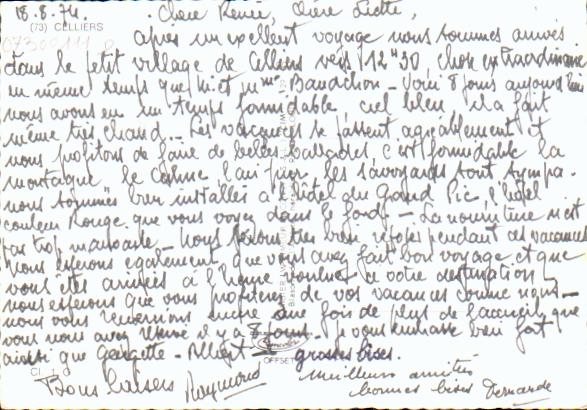 18.8.74. Chère Renée, Chère Liette,
(73) CELLIERS
07309111 0
après un excellent voyage nous sommes arrivés
dans le petit village de Celliers vers 12H30, chose extraordinaire
en même temps que Mr et Mme Baudchon - Voici 8 jours aujourd'hui
nous avons eu un temps formidable ciel bleu, il a fait
même très chaud. Les vacances se passent agréablement et
nous profitons de faire de belles ballades, c'est formidable la
montagne le calme l'air pur, les savoyards sont sympa.
nous sommes bien installés à l'hôtel du Grand Pic, l'hôtel
couleur Rouge que vous voyez dans le fond - La nourriture n'est
pas trop mauvaise - nous serons très bien reposés pendant ces vacances
Nous espérons également que vous avez fait bon voyage et que
vous êtes arrivés à l'heure voulue à votre destination
nous espérons que vous profitez de vos vacances comme nous -
nous vous remercions encore une fois de plus de l'accueil que
vous nous avez réservé il y a 8 jours. Je vous embrasse bien fort
ainsi que Georgette - Albert grosses bises.
OFFSET
CI
Bons baisers Raymond
Meilleures amitiés
bonnes bises